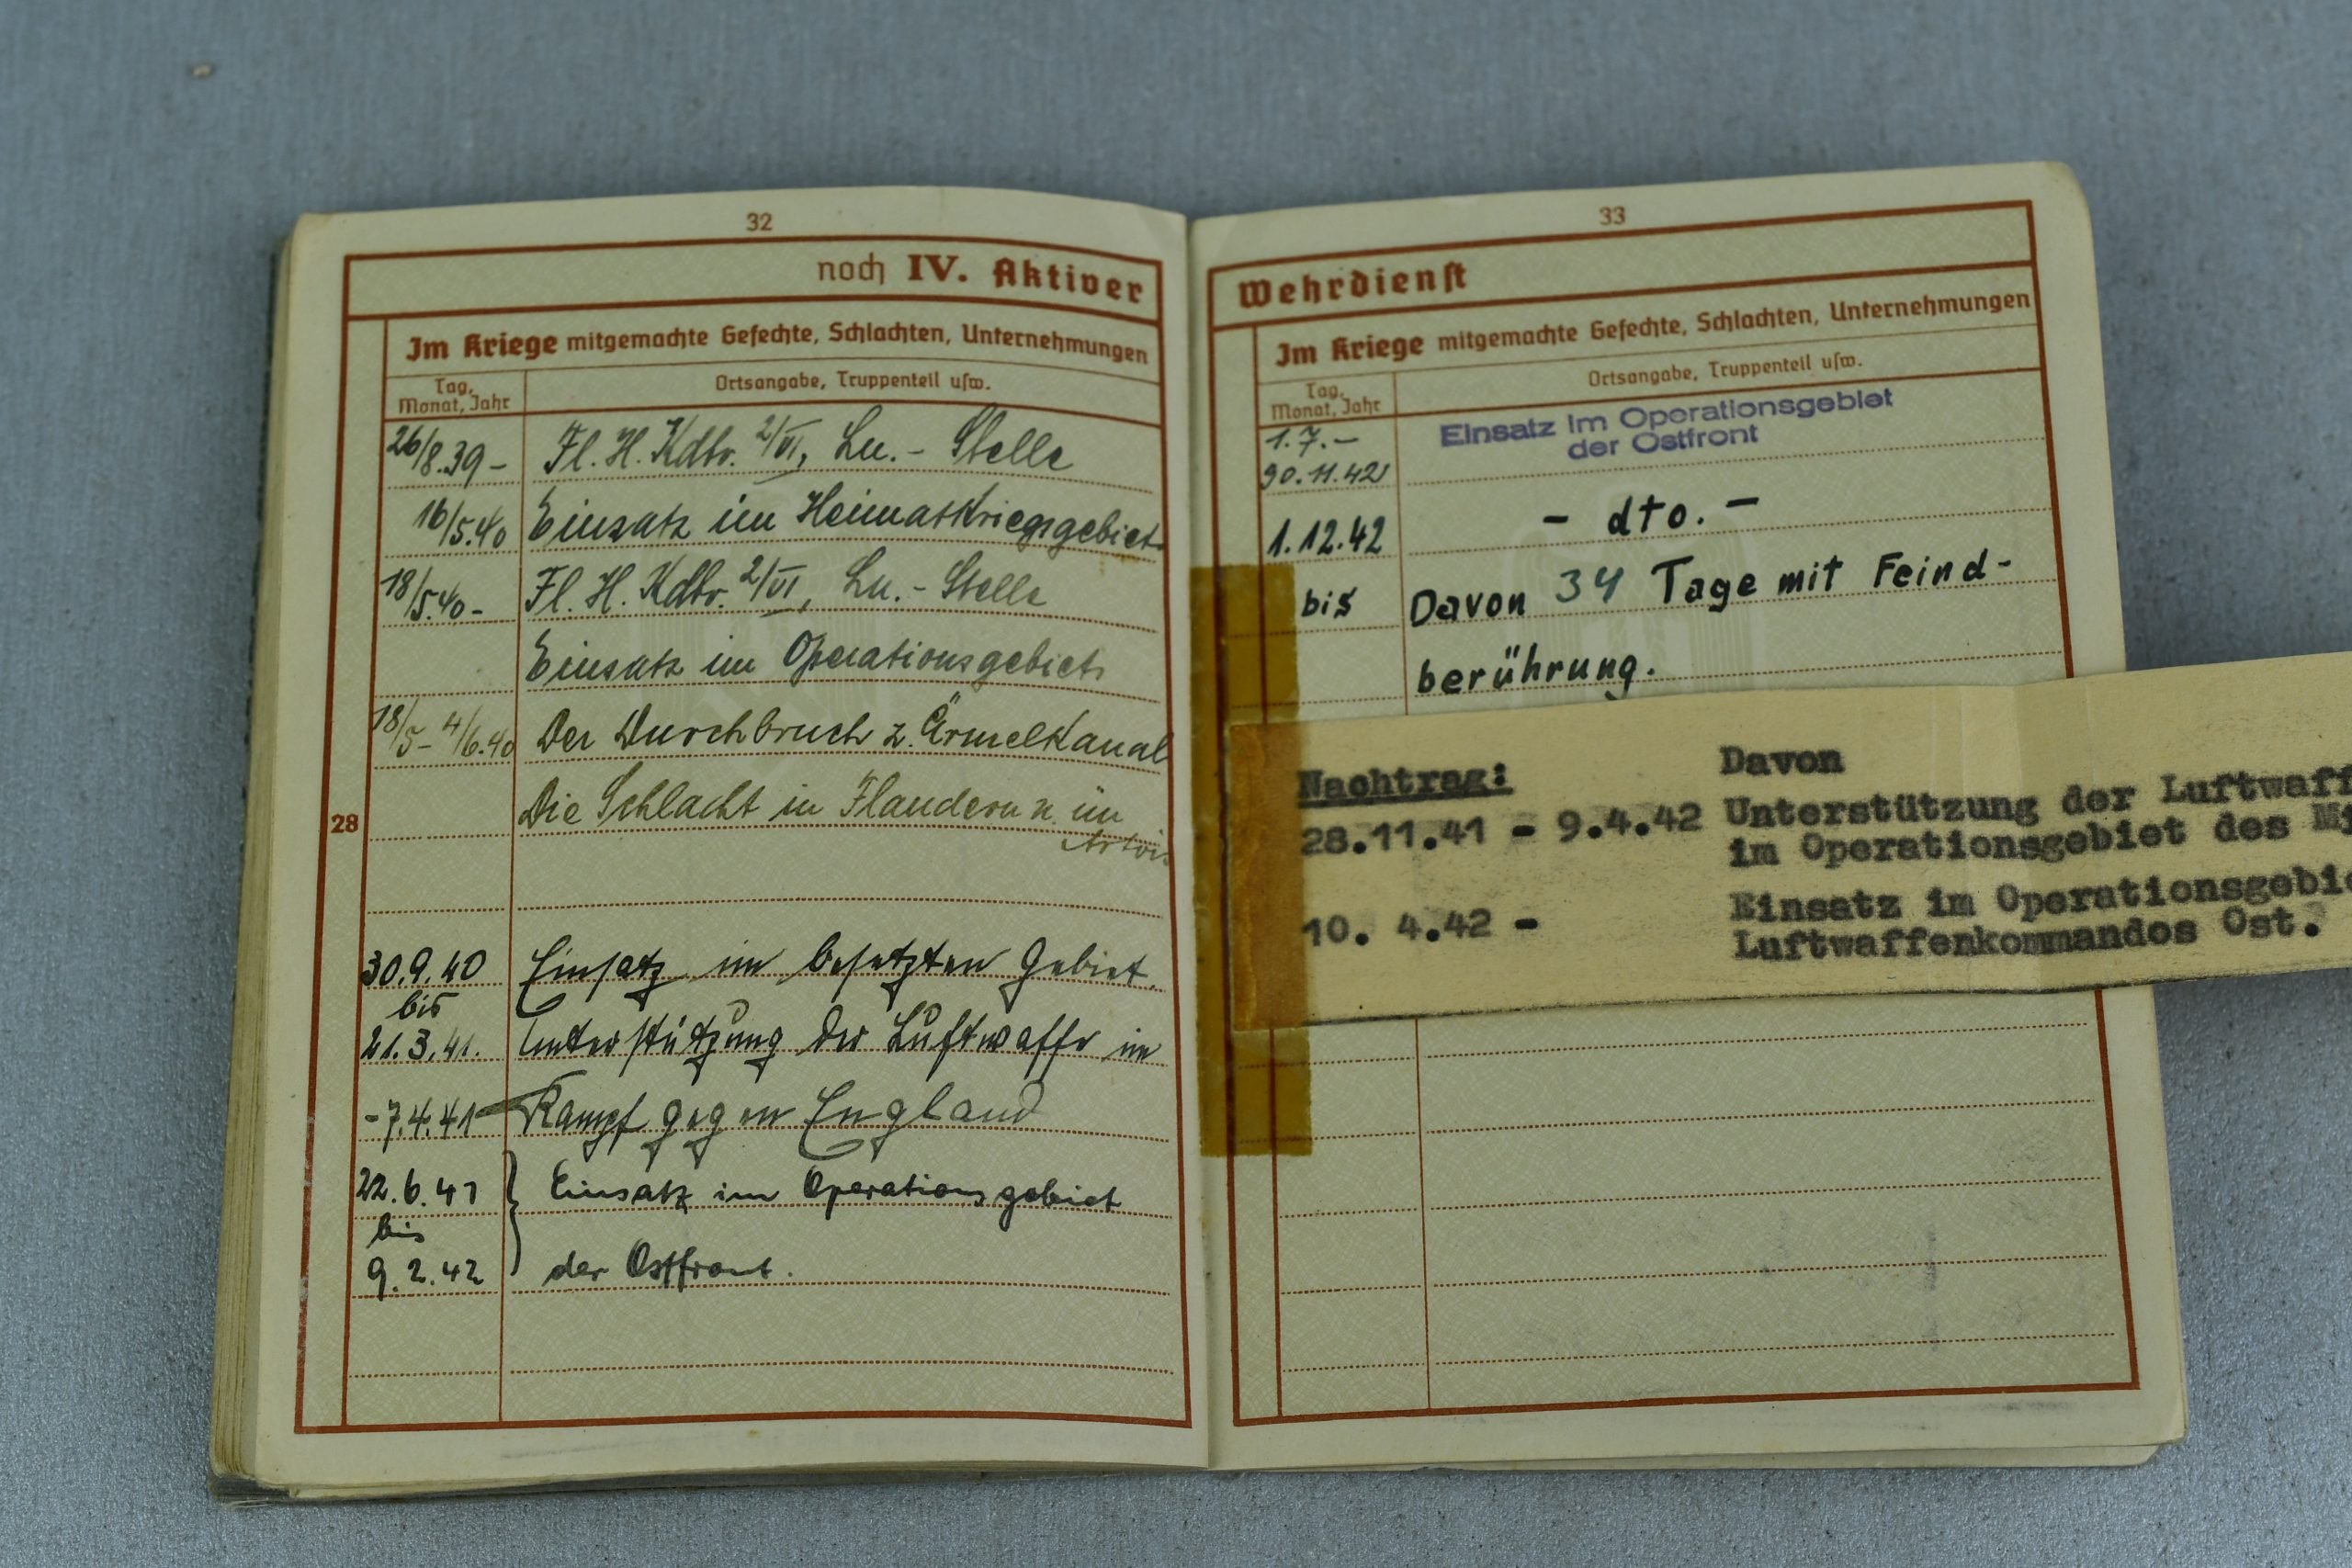 32
noch IV. Aktiver
Im Kriege mitgemachte Gefechte, Schlachten, Unternehmungen
Tag, Monat, Jahr
Ortsangabe, Truppenteil usw.
26/8.39 - Fl. H. Kdtr. 2/VI, Lu.- Stelle
16/5.40 Einsatz im Heimatkriegsgebiet
18/5.40 - Fl. H. Kdtr. 2/VI, Lu.- Stelle
Einsatz im Operationsgebiet
18/5 - 4/6.40 Der Durchbruch z. Ärmelkanal
28 Die Schlacht in Flandern u. im
Artois
30.9.40 Einsatz im besetzten Gebiet.
bis
21.3.41. Unterstützung der Luftwaffe im
- 7.4.41 Kampf gegen England
22.6.41 Einsatz im Operationsgebiet
bis
9.2.42 der Ostfront.
33
Wehrdienst
Im Kriege mitgemachte Gefechte, Schlachten, Unternehmungen
Tag, Monat, Jahr
Ortsangabe, Truppenteil usw.
1.7.- Einsatz im Operationsgebiet
der Ostfront
30.11.42
1.12.42 - dto. -
bis Davon 34 Tage mit Feind-
berührung.
Nachtrag: Davon
28.11.41 - 9.4.42 Unterstützung der Luftwaff
im Operationsgebiet des Mi
10. 4.42 - Einsatz im Operationsgebie
Luftwaffenkommandos Ost.